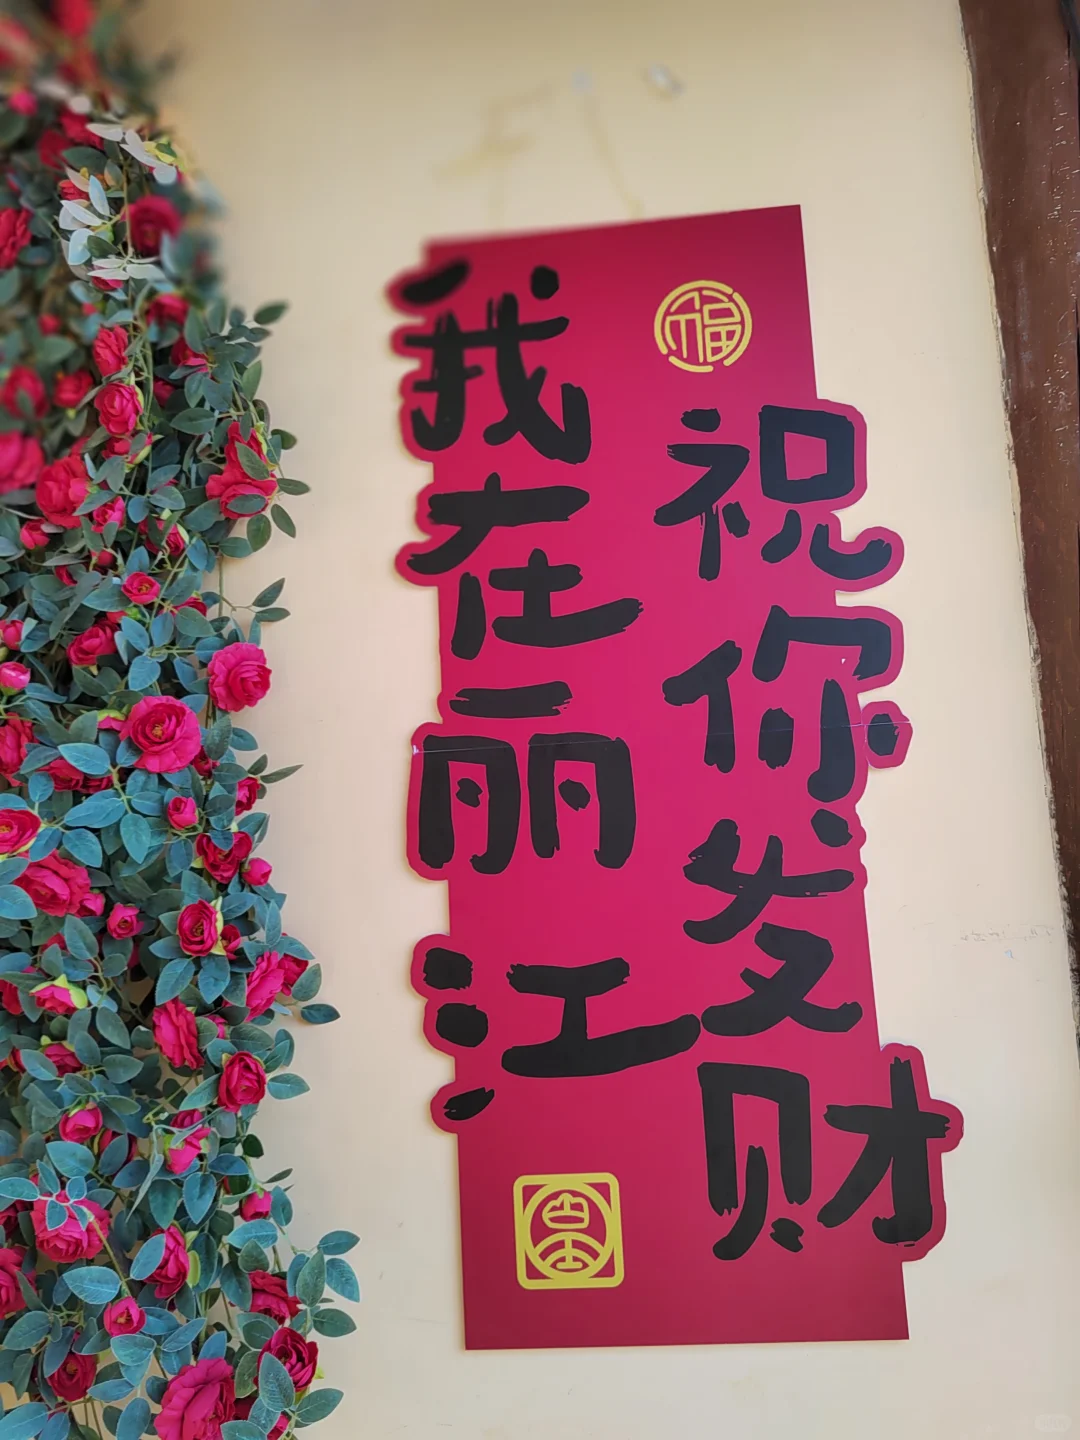 我在丽江
祝你发财
福